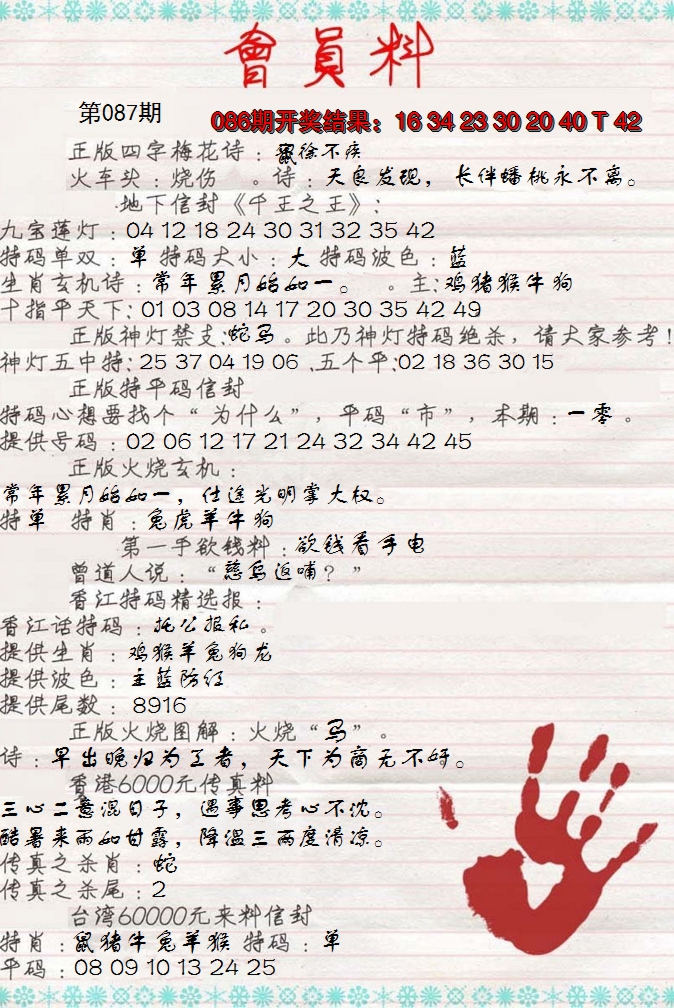 會員料
第087期
086期开奖结果：16 34 23 30 20 40 T 42
正版四字梅花诗：鼠徐不疾
火车头：烧伤 。诗：天良发现，长伴蟠桃永不离。
地下信封《千王之王》：
九宝莲灯：04 12 18 24 30 31 32 35 42
特码单双：单 特码大小：大 特码波色：蓝
生肖玄机诗：常年累月始如一。 。主：鸡猪猴牛狗
十指平天下：01 03 08 14 17 20 30 35 42 49
正版神灯禁支：蛇马。此乃神灯特码绝杀，请大家参考！
神灯五中特：25 37 04 19 06 .五个平：02 18 36 30 15
正版特平码信封
特码心想要找个“为什么”，平码“市”，本期：一零。
提供号码：02 06 12 17 21 24 32 34 42 45
正版火烧玄机：
常年累月始如一，仕途光明掌大权。
特单 特肖：兔虎羊牛狗
第一手欲钱料：欲钱看手电
曾道人说：“慈乌返哺？”
香江特码精选报：
香江话特码：托公报私。
提供生肖：鸡猴羊兔狗龙
提供波色：主蓝防红
提供尾数：8916
正版火烧图解：火烧“马”。
诗：早出晚归为王者，天下为商无不奸。
香港6000元传真料
三心二意混日子，遇事思考心不沈。
酷暑来雨如甘露，降温三两度清凉。
传真之杀肖：蛇
传真之杀尾：2
台湾60000元来料信封
特肖：鼠猪牛兔羊猴 特码：单
平码：08 09 10 13 24 25